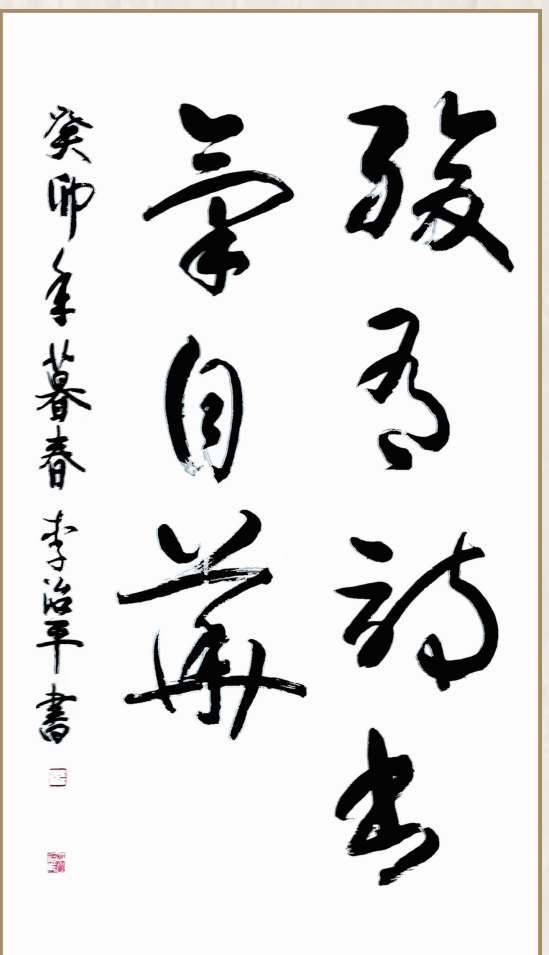 腹有詩書
氣自華
癸卯年暮春 李治平書